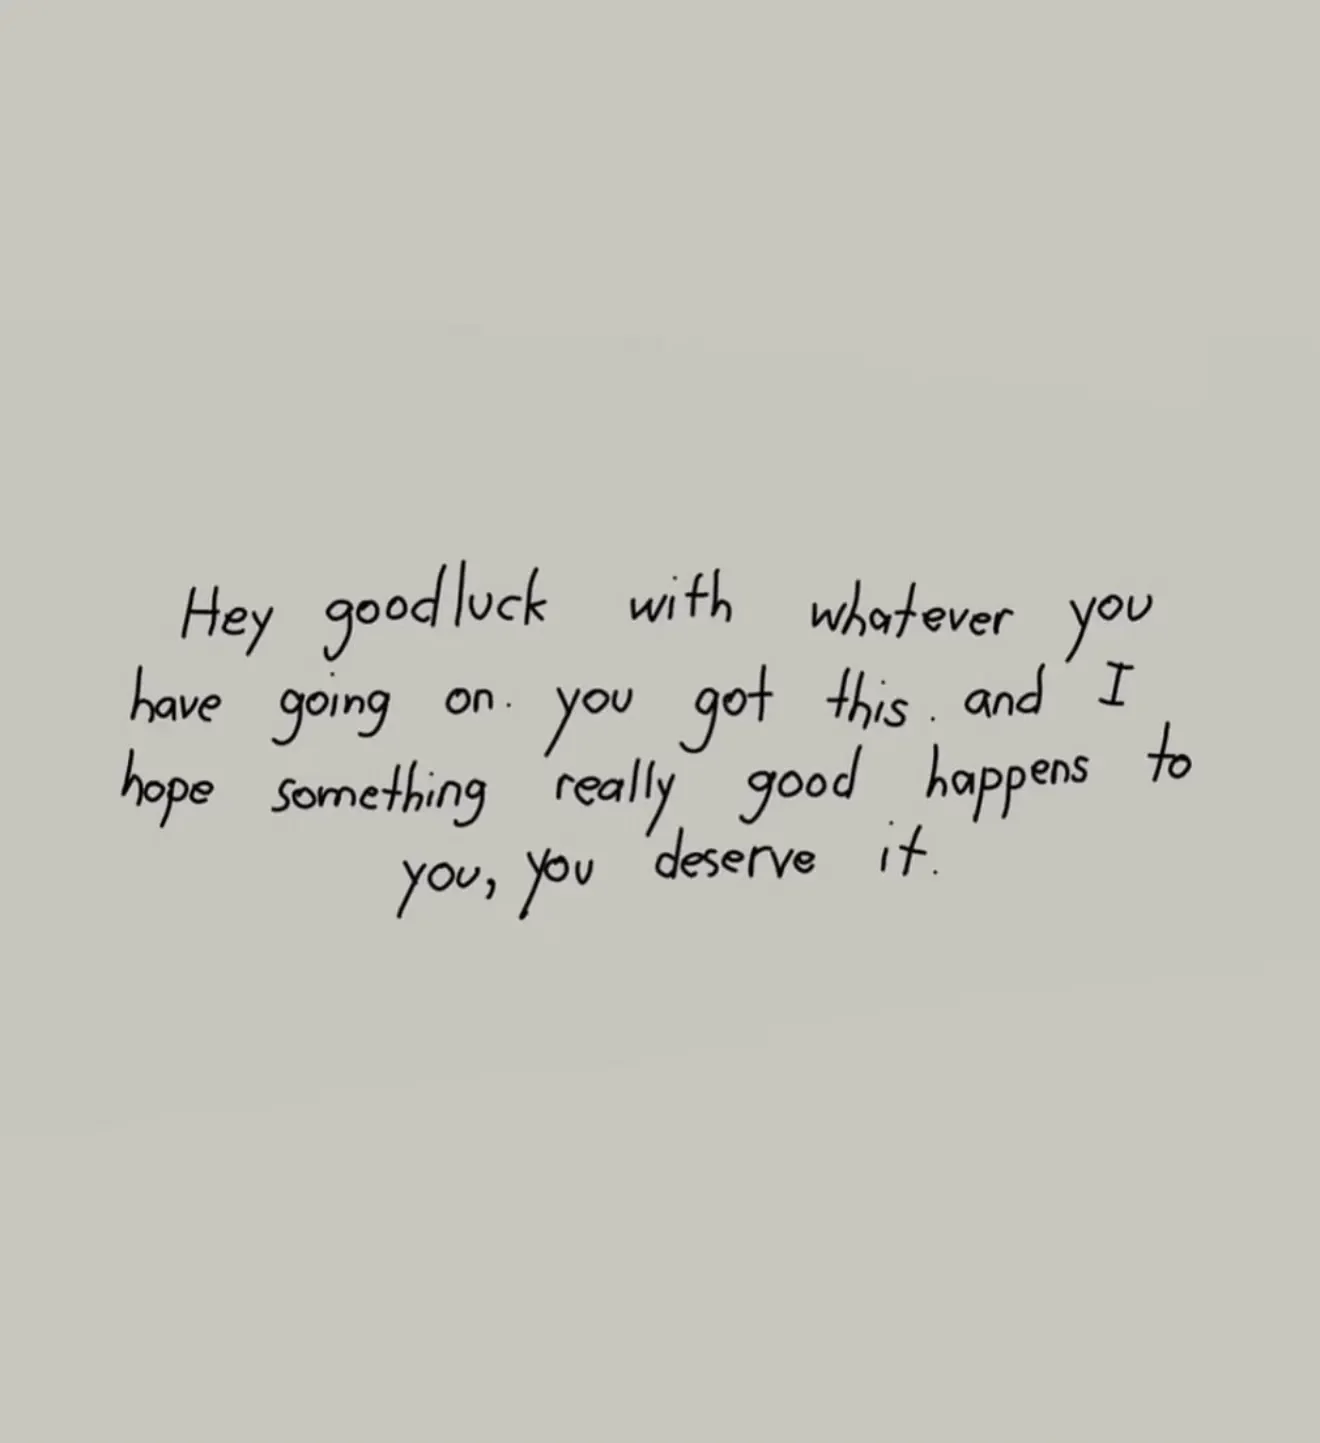 Hey goodluck with whatever you
have going on. you got this. and I
hope something really good happens to
you, you deserve it.